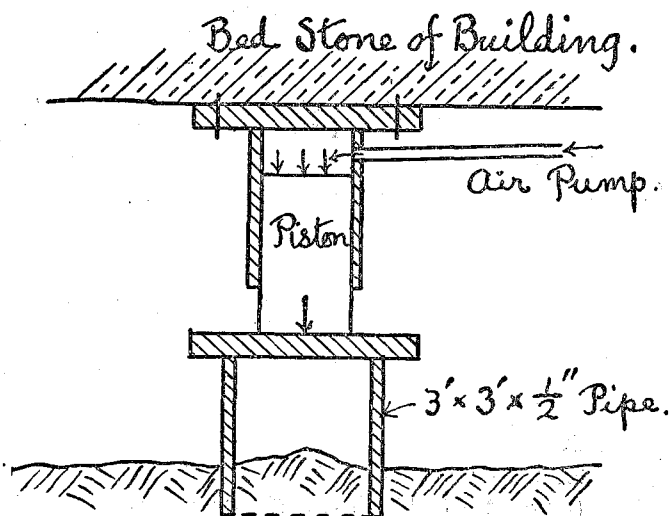 Bed Stone of Building.
Air Pump.
Piston
3' × 3' × 1/2" Pipe.